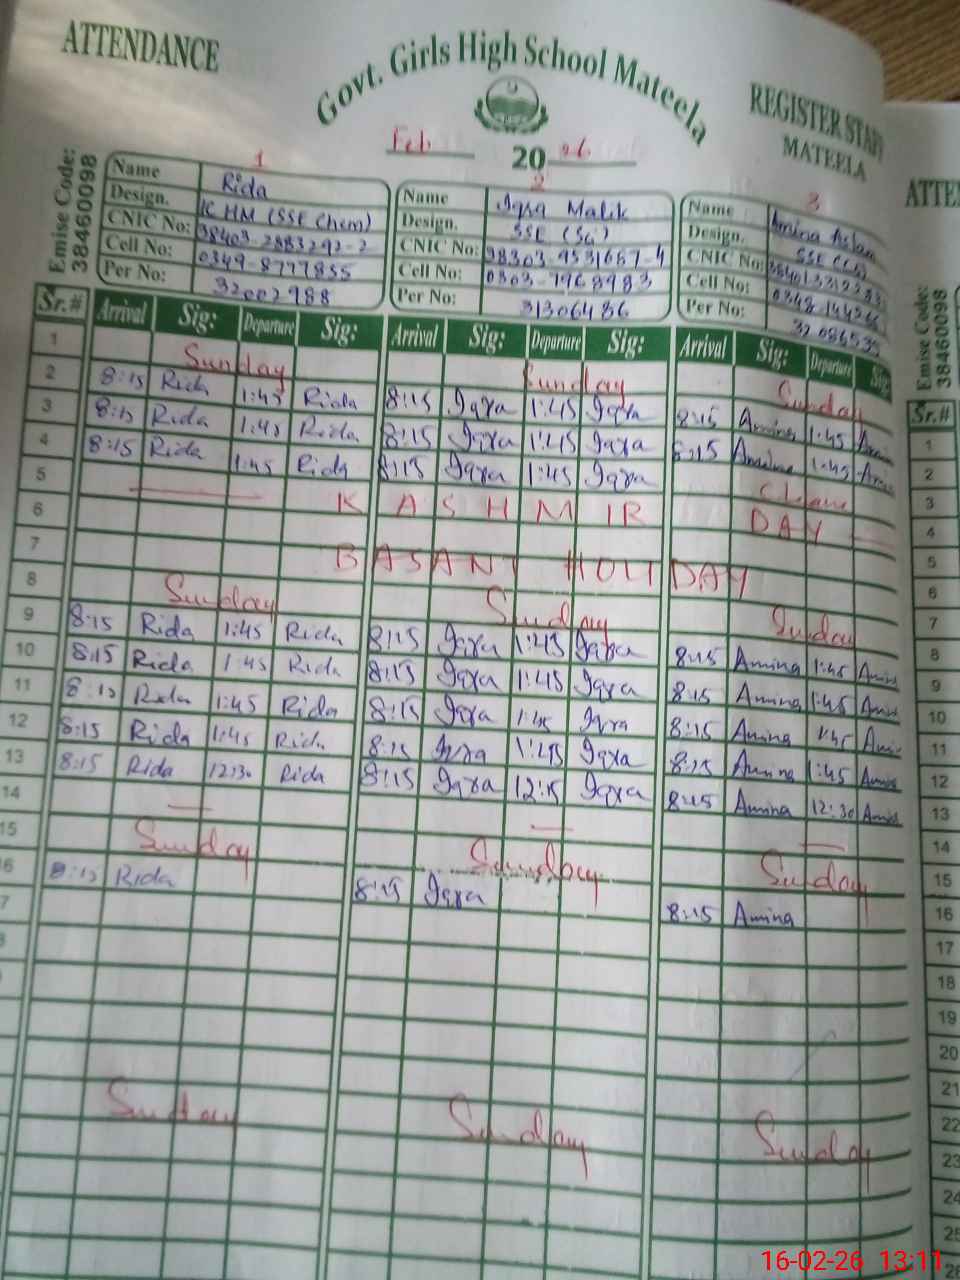 ATTENDANCE
Govt. Girls High School Mateela
REGISTER STAFF
MATEELA
Feb 2026
Emise Code: 38460098
1
Name Rida
Design. IC HM (SSE Chem)
CNIC No: 38403-2883292-2
Cell No: 0349-8777855
Per No: 32002988
2
Name Iqra Malik
Design. SSE (Sci)
CNIC No: 38303-9531687-4
Cell No: 0303-7968983
Per No: 31306486
3
Name Amina Aslam
Design. SSE (CS)
CNIC No:
Cell No:
Per No:
Sr.# Arrival Sig: Departure Sig: Arrival Sig: Departure Sig: Arrival Sig: Departure Sig
1 Sunday Sunday Sunday
2 8:15 Rida 1:45 Rida 8:15 Iqra 1:45 Iqra 8:15 Amina 1:45
3 8:15 Rida 1:45 Rida 8:15 Iqra 1:45 Iqra 8:15 Amina 1:45
4 8:15 Rida 1:45 Rida 8:15 Iqra 1:45 Iqra
5 KASHMIR DAY
6
7 BASANT HOLIDAY
8 Sunday Sunday Sunday
9 8:15 Rida 1:45 Rida 8:15 Iqra 1:45 Iqra 8:15 Amina 1:45
10 8:15 Rida 1:45 Rida 8:15 Iqra 1:45 Iqra 8:15 Amina 1:45
11 8:15 Rida 1:45 Rida 8:15 Iqra 1:45 Iqra 8:15 Amina 1:45
12 8:15 Rida 1:45 Rida 8:15 Iqra 1:45 Iqra 8:15 Amina 1:45
13 8:15 Rida 12:30 Rida 8:15 Iqra 12:15 Iqra 8:15 Amina 12:30
14
15 Sunday Sunday Sunday
6 8:15 Rida 8:15 Iqra 8:15 Amina
7
Sunday Sunday Sunday
ATTEN
Emise Code: 38460098
Sr.#
1
2
3
4
5
6
7
8
9
10
11
12
13
14
15
16
17
18
19
20
21
22
23
24
25
16-02-26 13:11